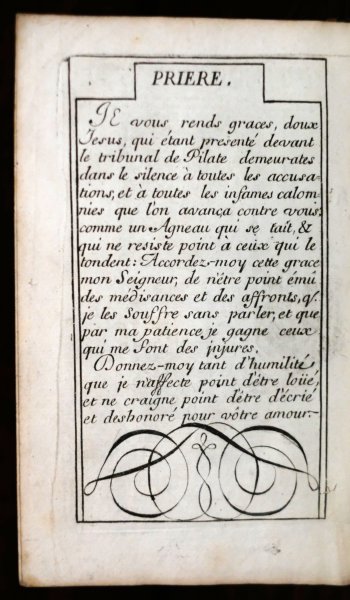 PRIERE.
JE vous rends graces, doux
Jesus, qui étant presenté devant
le tribunal de Pilate demeurates
dans le silence à toutes les accusa=
tions, et à toutes les infames calom
nies que l'on avança contre vous:
comme un Agneau qui se tait, &
qui ne resiste point à ceux qui le
tondent: Accordez-moy cette grace
mon Seigneur, de n'être point êmû
des médisances et des affronts, q.
je les Souffre sans parler, et que
par ma patience je gagne ceux
qui me font des injures.
Donnez-moy tant d'humilité,
que je n'affecte point d'être loüé,
et ne craigne point d'être d'écrié
et deshonoré pour vôtre amour.